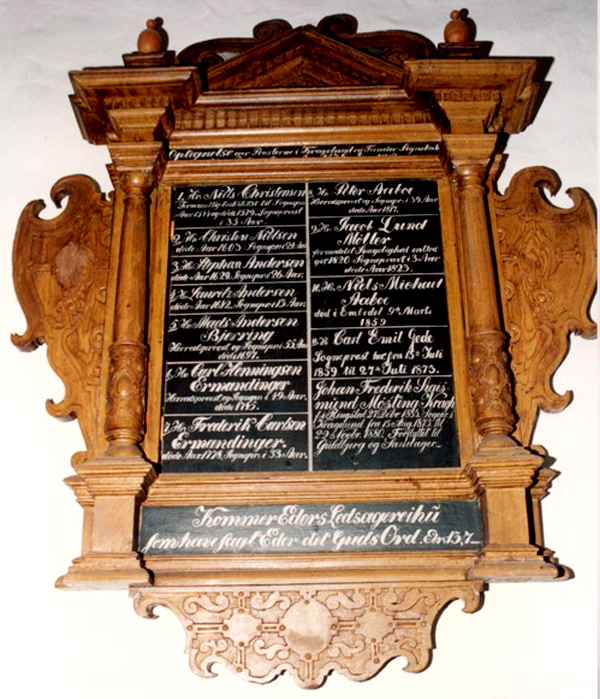 Optegnelse over Præsterne i Kragelund og Funder Sognekald
1. Hr. Niels Christensen
2. Hr. Christen Nielsen
døde Aar 1603. Sognepr. i 29 Aar.
3. Hr. Stephan Andersen
døde Aar 1629. Sognepr. i 26 Aar.
4. Hr. Lauritz Andersen
døde Aar 1642. Sognepr. i 13 Aar.
5. Hr. Mads Andersen
Bjerring
Herredsprovst og Sognepr. i 55 Aar
døde 1697.
6. Hr. Carl Henningsen
Ermandinger
Herredsprovst og Sognepr. i 49 Aar.
døde 1745.
7. Hr. Frederik Carlsen
Ermandinger.
døde Aar 1778. Sognepr. i 33 Aar.
8. Hr. Peter Aaboe
Herredsprovst og Sognepr. i 39 Aar
døde Aar 1817.
9. Hr. Jacob Lund
Möller
get 1820 Sognepræst i 3 Aar
døde Aar 1823.
10. Hr. Niels Michael
Aaboe
död i Embedet 9de Marts
1859
11. Hr. Carl Emil Gede
Sognepræst her fra 15de Juli
1859 til 27de Juli 1875.
Johan Frederik Sigis-
mund Møsting Kragh
Kragelund fra 15 Aug. 1875 til
22 Novbr. 1880. Forflyttet til
Guldbjerg og Sandager
Kommer Eders Ledsagere ihū
som have sagt Eder det Guds Ord. Ebr. 13,7